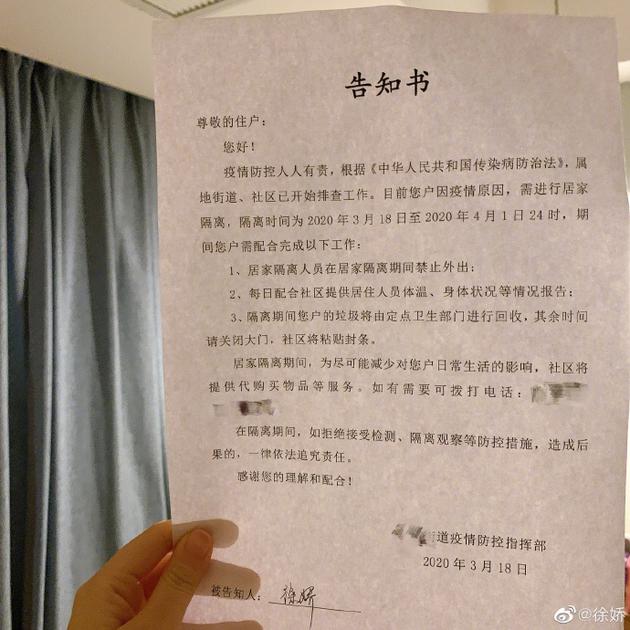 告知书
尊敬的住户：
您好！
疫情防控人人有责，根据《中华人民共和国传染病防治法》，属
地街道、社区已开始排查工作。目前您户因疫情原因，需进行居家
隔离，隔离时间为2020年3月18日至2020年4月1日24时，期
间您户需配合完成以下工作：
1、居家隔离人员在居家隔离期间禁止外出；
2、每日配合社区提供居住人员体温、身体状况等情况报告；
3、隔离期间您户的垃圾将由定点卫生部门进行回收，其余时间
请关闭大门，社区将粘贴封条。
居家隔离期间，为尽可能减少对您户日常生活的影响，社区将
提供代购买物品等服务。如有需要可拨打电话：
在隔离期间，如拒绝接受检测、隔离观察等防控措施，造成后
果的，一律依法追究责任。
感谢您的理解和配合！
道疫情防控指挥部
2020年3月18日
被告知人：徐娇
@徐娇